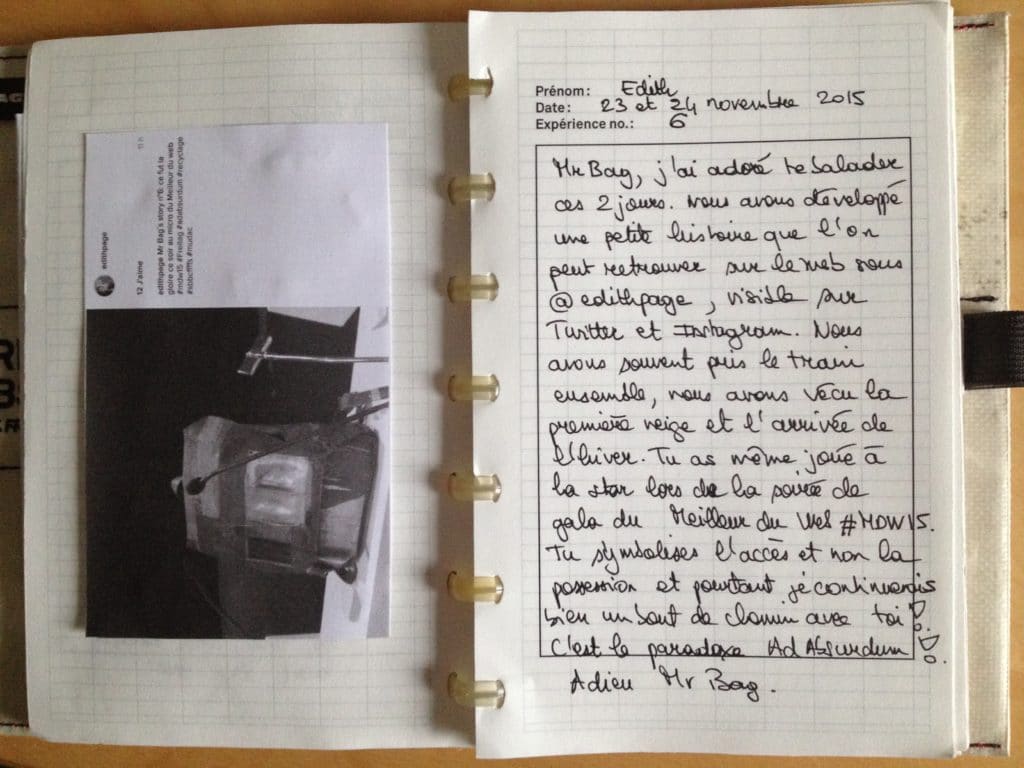 edithpage
11 h
12 J'aime
edithpage Mr Bag's story n°6: ce fut la
gloire ce soir au micro du Meilleur du web
#mdw15 #Freitag #adabsurdum #recyclage
#mudac
Prénom: Edith
Date: 23 et 24 novembre 2015
Expérience no.: 6
Mr Bag, j'ai adoré te balader
ces 2 jours. Nous avons développé
une petite histoire que l'on
peut retrouver sur le web sous
@edithpage, visible sur
Twitter et Instagram. Nous
avons souvent pris le train
ensemble, nous avons vécu la
première neige et l'arrivée de
l'hiver. Tu as même joué à
la star lors de la soirée de
gala du Meilleur du Web #MDW15.
Tu symbolises l'accès et non la
possession et pourtant je continuerais
bien un bout de chemin avec toi!
C'est le paradoxe Ad Absurdum!
Adieu Mr Bag.